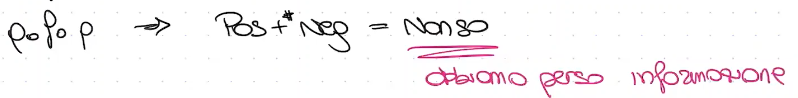 ρ∘f∘ρ ⇒ Pos +# Neg = Non so
abbiamo perso informazione